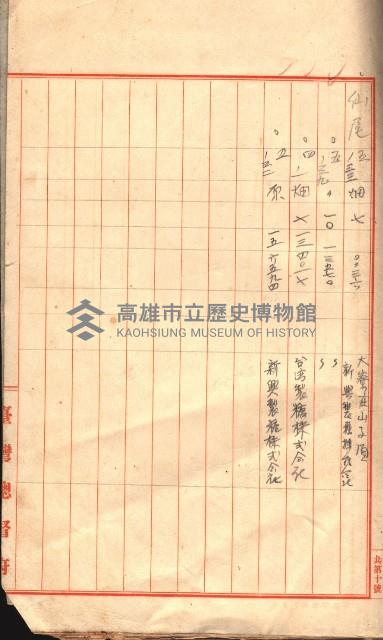 仙尾 五 畑 七 〇〇三三六
一三三
大寮庄山子頂
新興製糖株式会社
〇五 〃 一〇 一三五七〇
一三九
〃
〇四 一 畑 七 一三四〇一七
台湾製糖株式会社
〇五 原 一五 六五九四
一三二
新興製糖株式会社
臺灣總督府
北第十號
高雄市立歷史博物館
KAOHSIUNG MUSEUM OF HISTORY